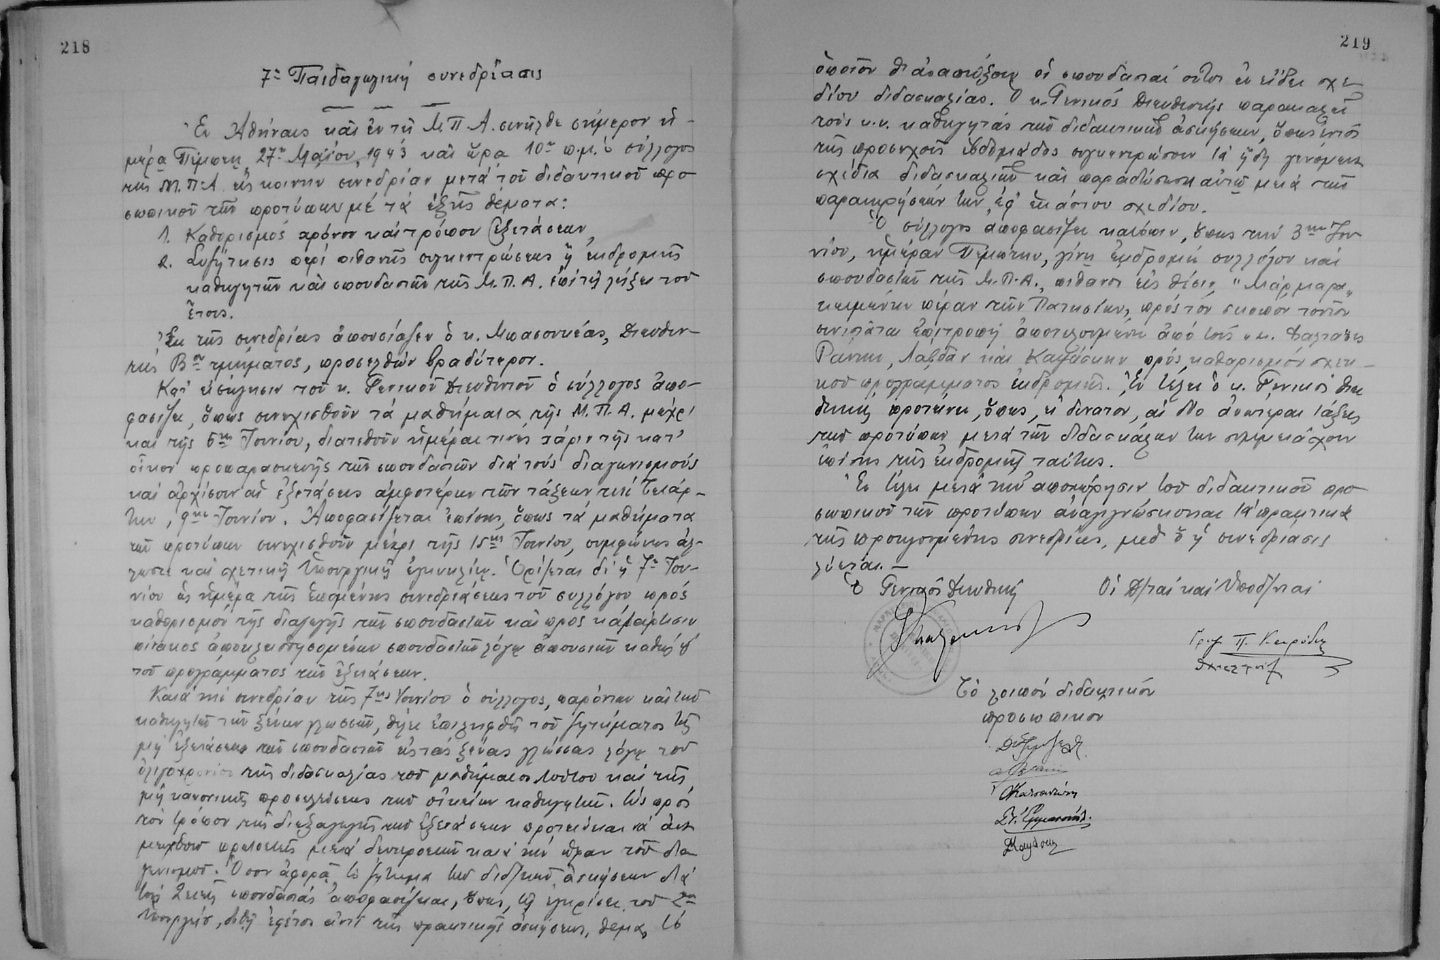 218
7η Παιδαγωγική συνεδρίασις
Ἐν Ἀθήναις καὶ ἐν τῇ Μ.Π.Α. συνῆλθε σήμερον ἡ-
μέρα Πέμπτη 27η Μαΐου 1943 καὶ ὥρα 10ην π.μ. ὁ σύλλογος
τῆς Μ.Π.Α. εἰς κοινὴν συνεδρίαν μετὰ τοῦ διδακτικοῦ προ-
σωπικοῦ τῶν προτύπων μὲ τὰ ἑξῆς θέματα:
1. Καθορισμός χρόνου καὶ τρόπου ἐξετάσεων,
2. Συζήτησις περὶ πιθανῆς συγκεντρώσεως ἢ ἐκδρομῆς
καθηγητῶν καὶ σπουδαστῶν τῆς Μ.Π.Α. ἐπὶ τῇ λήξει τοῦ
ἔτους.
Ἐκ τῆς συνεδρίας ἀπουσίαζεν ὁ κ. Μπασουκέας, Διευθυν-
τὴς Βου τμήματος, προσελθὼν βραδύτερον.
Κατ' εἰσήγησιν τοῦ κ. Γενικοῦ Διευθυντοῦ ὁ σύλλογος ἀπο-
φασίζει, ὅπως συνεχισθοῦν τὰ μαθήματα τῆς Μ.Π.Α. μέχρι
καὶ τῆς 5ης Ἰουνίου, διατεθοῦν ἡμέραι τινὲς χάριν τῆς κατ'
οἶκον προπαρασκευῆς τῶν σπουδαστῶν διὰ τοὺς διαγωνισμούς
καὶ ἀρχίσουν αἱ ἐξετάσεις ἀμφοτέρων τῶν τάξεων τὴν Τετάρ-
την, 9ην Ἰουνίου. Ἀποφασίζεται ἐπίσης, ὅπως τὰ μαθήματα
τῶν προτύπων συνεχισθοῦν μέχρι τῆς 15ης Ἰουνίου, συμφώνως ἄλ-
λωστε καὶ σχετικῇ Ὑπουργικῇ ἐγκυκλίῳ. Ὁρίζεται δὲ ἡ 7η Ἰου-
νίου ὡς ἡμέρα τῆς ἑπομένης συνεδριάσεως τοῦ συλλόγου πρὸς
καθορισμὸν τῆς διαγωγῆς τῶν σπουδαστῶν καὶ πρὸς κατάρτισιν
πίνακος ἀποκλεισθησομένων σπουδαστῶν λόγῳ ἀπουσιῶν καθὼς καὶ
τοῦ προγράμματος τῶν ἐξετάσεων.
Κατὰ τὴν συνεδρίαν τῆς 7ης Ἰουνίου ὁ σύλλογος, παρόντων καὶ τῶν
καθηγητῶν τῶν ξένων γλωσσῶν, θέλει ἐπιληφθῆ τοῦ ζητήματος τῆς
μὴ ἐξετάσεως τῶν σπουδαστῶν εἰς τὰς ξένας γλώσσας λόγῳ τοῦ
ὀλιγοχρονίου τῆς διδασκαλίας τοῦ μαθήματος τούτου καὶ τῆς
μὴ κανονικῆς προσελεύσεως τῶν οἰκείων καθηγητῶν. Ὡς πρὸς
τὸν τρόπον τῆς διεξαγωγῆς τῶν ἐξετάσεων προτείνεται νὰ
κατὰ τὴν ὥραν τοῦ δια-
γωνισμοῦ. Ὅσον ἀφορᾷ τὸ ζήτημα τῶν διδ/κῶν ἀσκήσεων διὰ
τοὺς 2ετεῖς σπουδαστάς ἀποφασίζεται, ὅπως, τῇ ἐγκρίσει τοῦ
Ὑπουργείου, δοθῇ ἐφέτος ἀντὶ τῆς πρακτικῆς ἀσκήσεως, θέμα, τὸ
219
ὁποῖον θὰ ἀναπτύξουν οἱ σπουδασταὶ οὗτοι ἐν εἴδει σχε-
δίου διδασκαλίας. Ὁ κ. Γενικὸς Διευθυντής παρακαλεῖ
τοὺς κ.κ. καθηγητάς τῶν διδακτικῶν ἀσκήσεων, ὅπως ἐντὸς
τῆς προσεχοῦς ἑβδομάδος συγκεντρώσουν τὰ ἤδη γενόμενα
σχέδια διδασκαλιῶν καὶ παραδώσουν αὐτῷ μετὰ τῶν
παρατηρήσεών των ἐφ' ἑκάστου σχεδίου.
Ὁ σύλλογος ἀποφασίζει κατόπιν, ὅπως τὴν 3ην Ἰου-
νίου, ἡμέραν Πέμπτην, γίνῃ ἐκδρομὴ συλλόγου καὶ
σπουδαστῶν τῆς Μ.Π.Α., πιθανῶς εἰς θέσιν "Μάρμαρα"
κειμένην πέραν τῶν Πατησίων, πρὸς τὸν σκοπὸν τοῦτον
συνιστᾶται ἐπιτροπὴ ἀποτελουμένη ἀπὸ τοὺς κ.κ.
Λάβδαν καὶ πρὸς καθορισμὸν σχετι-
κοῦ προγράμματος ἐκδρομῆς. Ἐν τέλει ὁ κ. Γενικὸς Διευ-
θυντὴς προτείνει, ὅπως, εἰ δυνατόν, αἱ δύο ἀνώτεραι τάξεις
τῶν προτύπων μετὰ τῶν διδασκάλων των συμμετάσχουν
ἐπίσης τῆς ἐκδρομῆς ταύτης.
Ἐν τέλει μετὰ τὴν ἀποχώρησιν τοῦ διδακτικοῦ προ-
σωπικοῦ τῶν προτύπων ἀναγιγνώσκονται τὰ πρακτικά
τῆς προηγουμένης συνεδρίας, μεθ' ὃ ἡ συνεδρίασις
λύεται.—
Ὁ Γενικὸς Διευθυντής
Οἱ Δ/ταὶ καὶ Ὑποδ/νταὶ
Τὸ λοιπὸν διδακτικόν
προσωπικόν